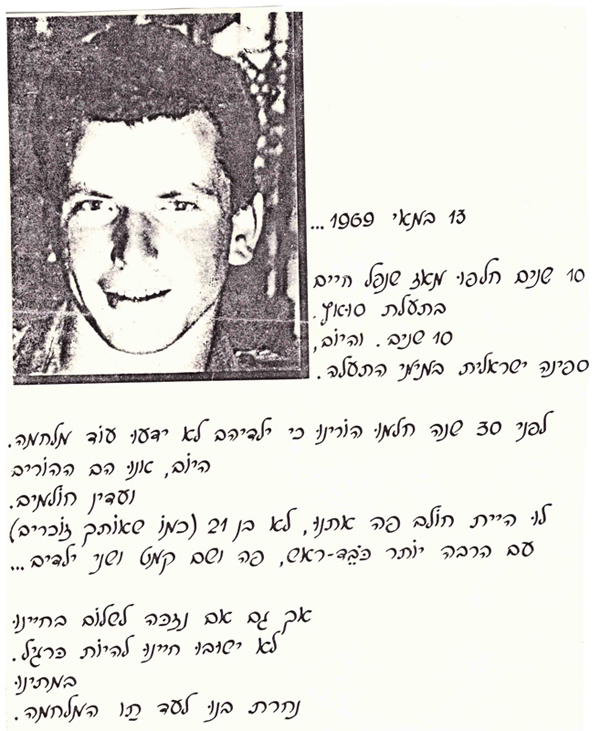 13 במאי 1969...
10 שנים חלפו מאז שנפל חיים
בתעלת סואץ.
10 שנים. והיום,
ספינה ישראלית במימי התעלה.
לפני 30 שנה חלמו הורינו כי ילדיהם לא ידעו עוד מלחמה.
היום, אנו הם ההורים
ועדין חולמים.
לו היית חולם פה אתנו, לא בן 21 (כמו שאותך זוכרים)
עם הרבה יותר כֹּבֶד-ראש, פה ושם קמט ושני ילדים...
אך גם אם נזכה לשלום בחיינו
לא ישובו חיינו להיות כרגיל.
במתינו
נחרת בנו לעד תַו המלחמה.